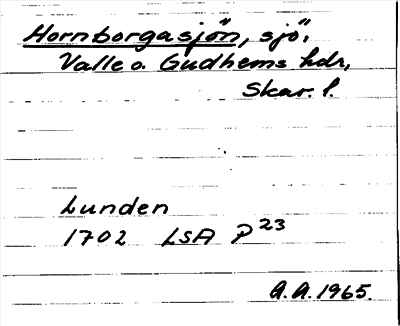 Hornborgasjön, sjö,
Valle o. Gudhems hdr,
Skar. l.
Lunden
1702 LSA P 23
A.A. 1965.